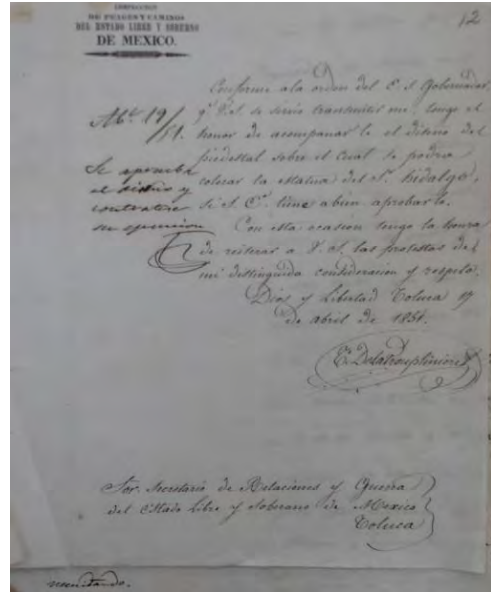 INSPECCION
DE PEAGES Y CAMINOS
DEL ESTADO LIBRE Y SOBERANO
DE MEXICO.
12
Conforme a la orden del E. S. Gobernador,
q.e V.S. se sirvio transmitirme, tengo el
honor de acompañarle el diseño del
piedestal sobre el cual se podra
colocar la estatua del Sr. Hidalgo,
si S. E.a tiene a bien aprobarlo.
Con esta ocasion tengo la honra
de reiterar a V. S. las protestas de
mi distinguida consideracion y respeto.
Dios y Libertad Toluca 17
de abril de 1851.
Abl. 19/51.
Se aprueba
el diseño y
contratese
su ejecucion
Sor. Secretario de Relaciones y Guerra
del Estado Libre y Soberano de Mexico
Toluca